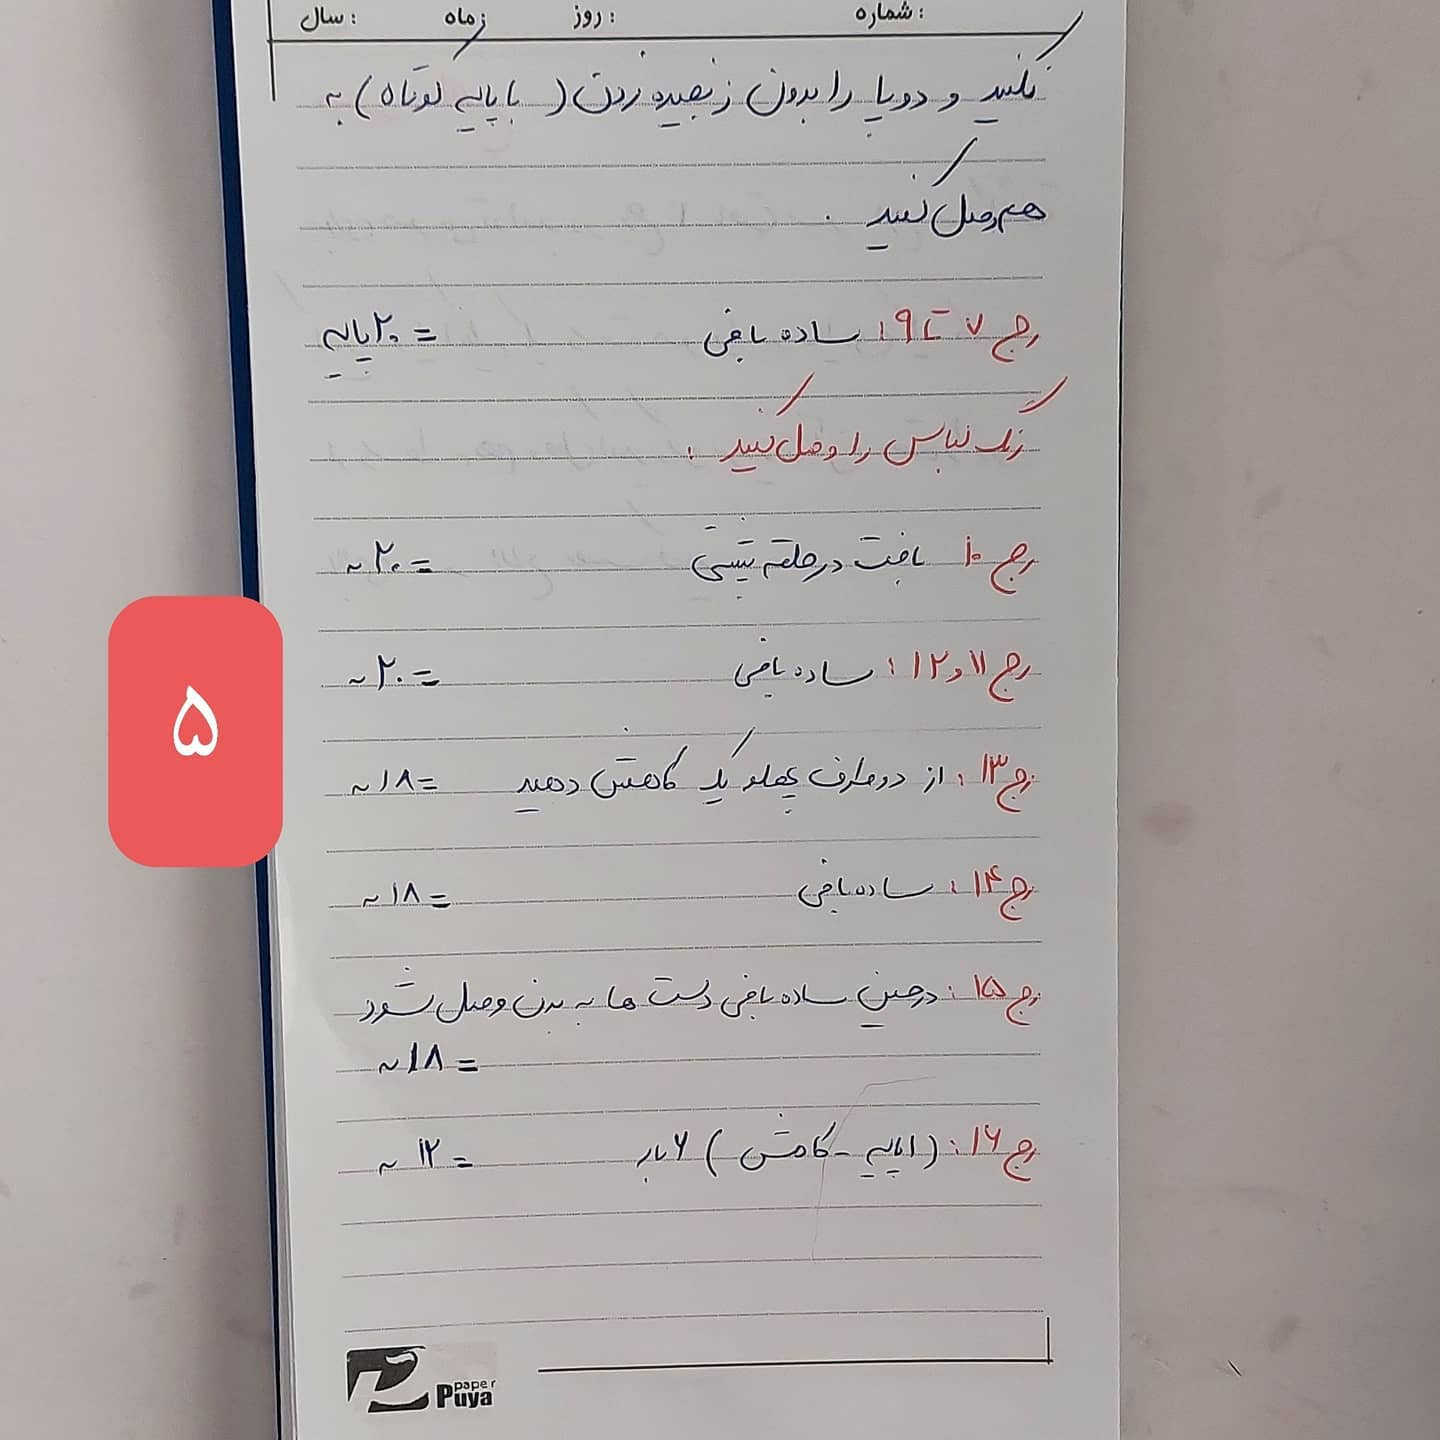 شماره :
روز :
ماه
سال :
نکنید و دوپا را بدون زنجیره زدن ( با پایه کوتاه ) به
هم وصل کنید .
رج ۷ تا ۹ : ساده بافی = ۲۰ پایه
رنگ لباس را وصل کنید .
رج ۱۰ بافت در حلقه پشتی = ۲۰ ~
رج ۱۱ و ۱۲ : ساده بافی = ۲۰ ~
رج ۱۳ : از دو طرف پهلو یک کاهش دهید = ۱۸ ~
رج ۱۴ : ساده بافی = ۱۸ ~
رج ۱۵ : در حین ساده بافی دست ها به بدن وصل شود
= ۱۸ ~
رج ۱۶ : ( ۱ پایه - کاهش ) ۶ بار = ۱۲ ~
۵
paper
Puya